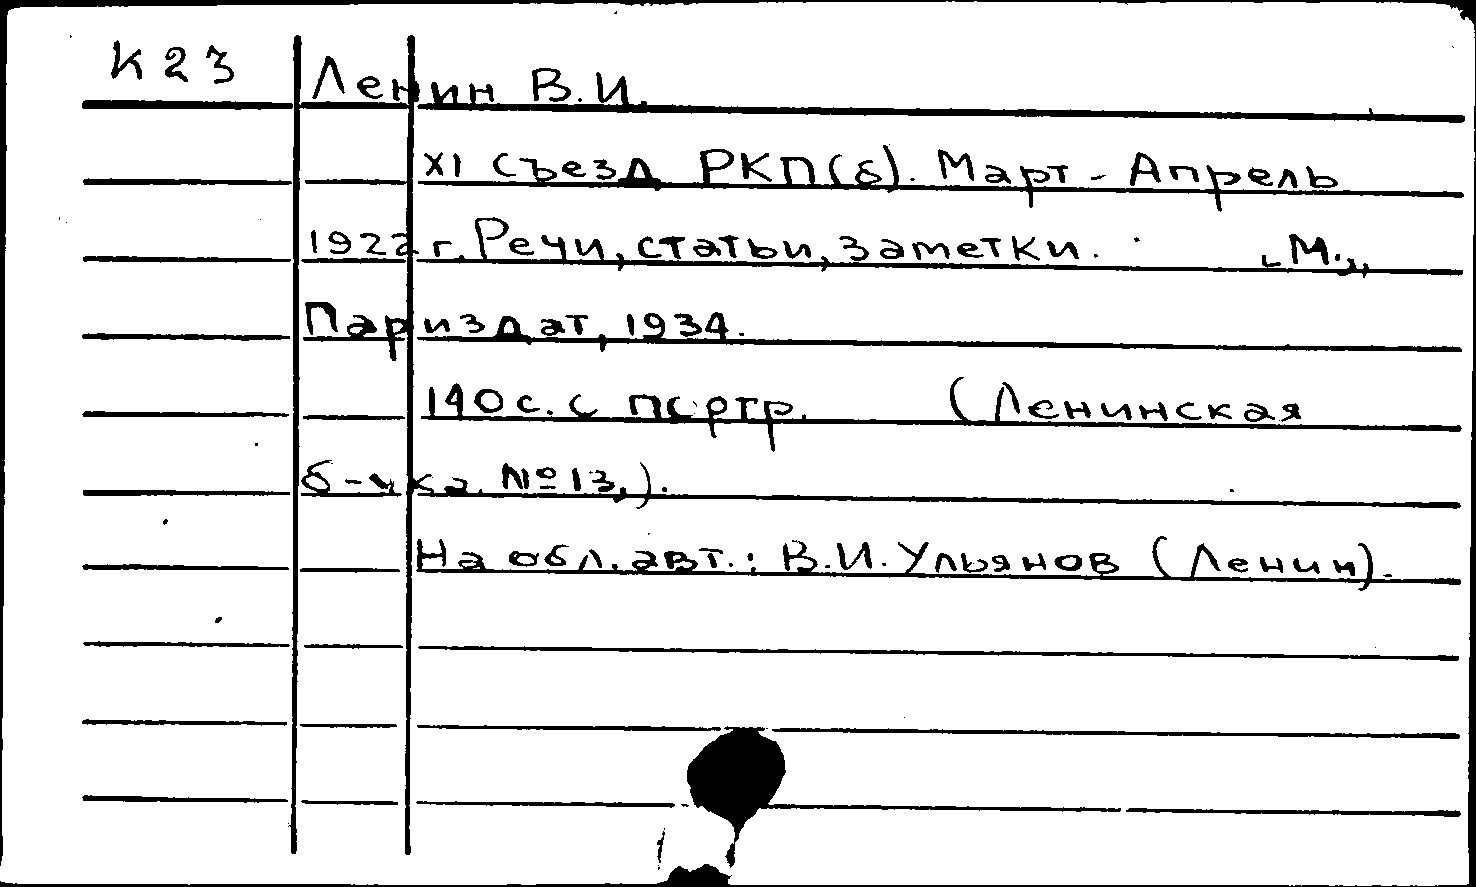 К23
Ленин В.И.
XI съезд РКП(б). Март - Апрель
1922 г. Речи, статьи, заметки. „М.„
Париздат, 1934.
140с. с портр. (Ленинская
б-чка. №13,).
На обл. авт.: В.И. Ульянов (Ленин).